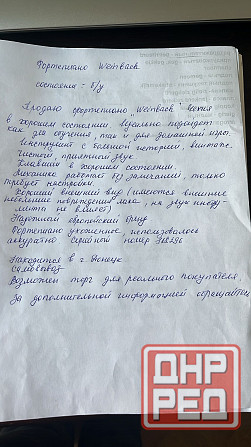 Фортепиано Weinbach
состояние - б/у
Продаю фортепиано Weinbach Чехия
в хорошем состоянии. Идеально подойдет
как для обучения, так и для домашней игры.
Инструмент с большой историей, винтаж.
Чистый, приятный звук
Клавиши в хорошем состоянии.
Механика работает без замечаний, только
требует настройки
Хороший внешний вид (имеются внешние
небольшие повреждения лака, на звук инстру-
мента не влияет)
Надежный европейский бренд
Фортепиано ухоженное, использовалось
аккуратно Серийный номер
Находится в г. Донецк
Самовывоз
Возможен торг для реального покупателя,
За дополнительной информацией обращайтесь
ДНР
РЕД